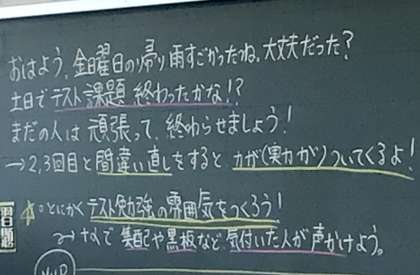 おはよう、金曜日の帰り雨すごかったね。大丈夫だった？
土日でテスト課題 終わったかな!?
まだの人は 頑張って、終わらせましょう！
→2,3回目と間違い直しをすると 力が(実力が)ついてくるよ！
☆とにかく テスト勉強の雰囲気をつくろう！
集配や黒板など 気付いた人が 声かけよう。